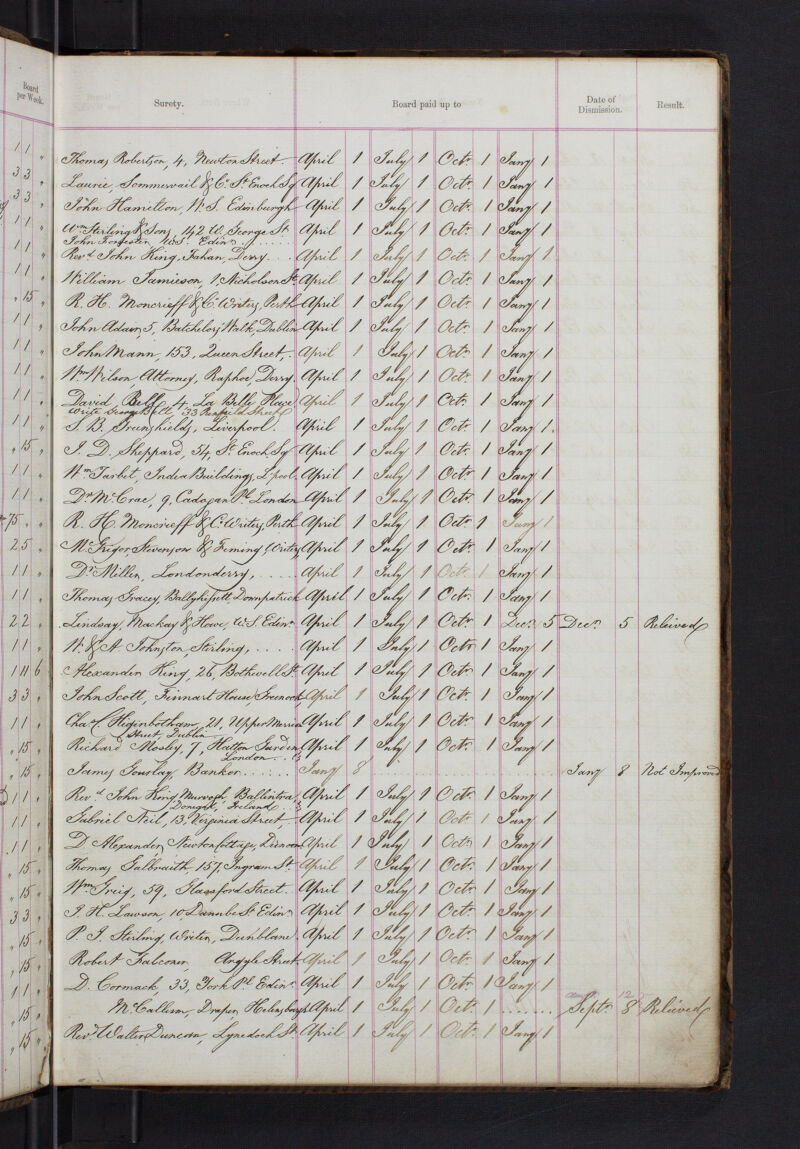 Board per Week.
Surety.
Board paid up to
Date of Dismission.
Result.
1 1 " Thomas Robertson, 4, Newton Street. April 1 July 1 Octr. 1 Jany 1
3 3 " Laurie, Sommervail & Co. St. Enoch Sq April 1 July 1 Octr. 1 Jany 1
3 3 " John Hamilton, W.S. Edinburgh April 1 July 1 Octr. 1 Jany 1
1 1 " Wm Stirling & Sons, 142 W. George St. April 1 July 1 Octr. 1 Jany 1
John Forrester W.S. Edinr.
1 1 " Revd. John King, Fahan, Derry April 1 July 1 Octr. 1 Jany 1
1 1 " William Jamieson, 1 Nicholson St. April 1 July 1 Octr. 1 Jany 1
" 15 " R. H. Moncrieff & Co. Writers, Perth April 1 July 1 Octr. 1 Jany 1
1 1 " John Adair, 5, Batchelors Walk, Dublin April 1 July 1 Octr. 1 Jany 1
1 1 " John Mann, 153, Queen Street, April 1 July 1 Octr. 1 Jany 1
1 1 " Wm Wilson, Attorney, Raphoe, Derry April 1 July 1 Octr. 1 Jany 1
1 1 " David Bell, 4, La Belle Place April 1 July 1 Octr. 1 Jany 1
Write George Bell, 33 Street
1 1 " S. B. Greenshields, Liverpool. April 1 July 1 Octr. 1 Jany 1
" 15 " J. D. Sheppard, 54, St. Enoch Sq April 1 July 1 Octr. 1 Jany 1
1 1 " Wm Tarbet, India Buildings, L'pool. April 1 July 1 Octr. 1 Jany 1
1 1 " Dr. McCrae, 9, Cadogan Pl. London April 1 July 1 Octr. 1 Jany 1
75 " " R. H. Moncrieff & Co. Writers, Perth April 1 July 1 Octr. 1 Jany 1
2 5 " McGrigor, Stevenson & Fleming, Writers April 1 July 1 Octr. 1 Jany 1
1 1 " Dr. Miller, Londonderry, April 1 July 1 Octr. 1 Jany 1
1 1 " Thomas Gracey, Downpatrick April 1 July 1 Octr. 1 Jany 1
2 2 " Lindsay, Mackay & Howe, W.S. Edinr. April 1 July 1 Octr. 1 Decr. 5 Decr. 5 Relieved
1 1 " W. & A. Johnston, Stirling, April 1 July 1 Octr 1 Jany 1
1 11 6 Alexander King, 26, Bothwell St. April 1 July 1 Octr. 1 Jany 1
3 3 " John Scott, Finnart House, Greenock April 1 July 1 Octr. 1 Jany 1
1 1 " Chas. Higinbotham, 21, Upper Merrion April 1 July 1 Octr. 1 Jany 1
Street, Dublin
" 15 " Richard Mosley, 7, Hatton Garden April 1 July 1 Octr. 1 Jany 1
London
" 15 " James Gourlay, Banker Jany 8 Jany 8 Not Improved
1 1 " Revd. John King, Murvagh, Ballintra, April 1 July 1 Octr. 1 Jany 1
Donegal, Ireland
1 1 " Gabriel Neil, 13, Virginia Street, April 1 July 1 Octr 1 Jany 1
1 1 " D. Alexander, Newton Cottage, Dunoon April 1 July 1 Octr. 1 Jany 1
" 15 " Thomas Galbraith, 157, Ingram St. April 1 July 1 Octr. 1 Jany 1
" 15 " Wm Greig, 59, Glassford Street. April 1 July 1 Octr. 1 Jany 1
3 3 " J. H. Lawson, 10 Danube St. Edinr. April 1 July 1 Octr. 1 Jany 1
" 15 " P. J. Stirling, Writer, Dunblane. April 1 July 1 Octr. 1 Jany 1
" 15 " Robert Falconer, Argyle Street April 1 July 1 Octr. 1 Jany 1
1 1 " D. Cormack, 33, York Pl. Edinr. April 1 July 1 Octr. 1 Jany 1
" 15 " McCallum, Draper, Helensburgh April 1 July 1 Octr. 1 Sept. 8 Relieved
" 15 " Revd. Walter Duncan, Lynedoch St. April 1 July 1 Octr. 1 Jany 1